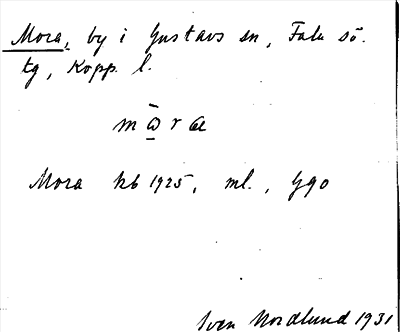 Mora, by i Gustavs sn, Falu sö.
tg, Kopp. l.
mω̱̄ræ
Mora kb 1925, ml., Ggo
Sven Nordlund 1931